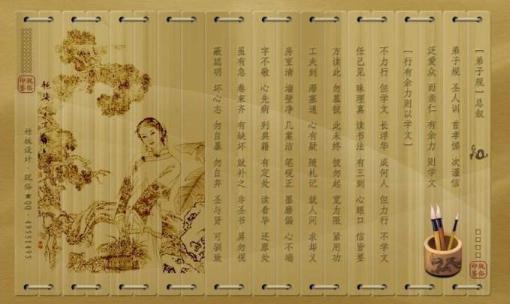 [弟子规] 总叙
弟子规 圣人训 首孝悌 次谨信
泛爱众 而亲仁 有余力 则学文
[行有余力则以学文]
不力行 但学文 长浮华 成何人 但力行 不学文
任己见 昧理真 读书法 有三到 心眼口 信皆要
方读此 勿慕彼 此未终 彼勿起 宽为限 紧用功
工夫到 滞塞通 心有疑 随札记 就人问 求确义
房室清 墙壁净 几案洁 笔砚正 墨磨偏 心不端
字不敬 心先病 列典籍 有定处 读看毕 还原处
虽有急 卷束齐 有缺坏 就补之 非圣书 屏勿视
蔽聪明 坏心志 勿自暴 勿自弃 圣与贤 可驯致